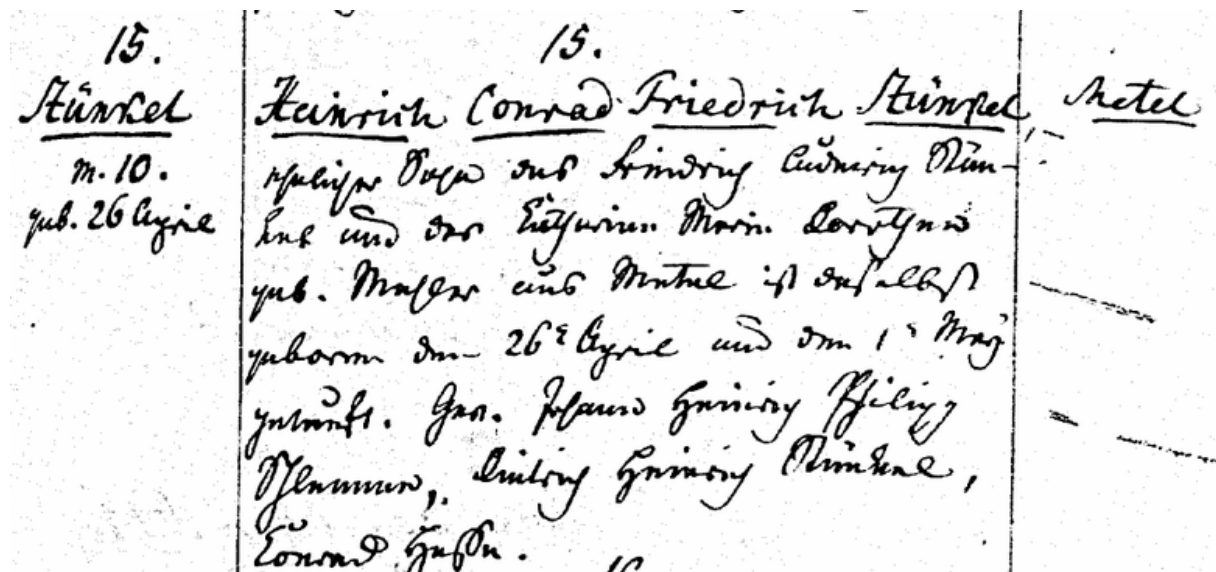 15.
Stünkel
m. 10.
geb. 26 April
15.
Heinrich Conrad Friedrich Stünkel,
ehelicher Sohn des Friedrich Ludewig Stün-
kel und der Catharina Marie Dorothea
geb. Mahler aus Metel ist daselbst
geboren den 26t April und den 1t May
getauft. Gev. Johann Heinrich Philipp
Dietrich Heinrich Stünkel,
Conrad Hasse.
16
Metel